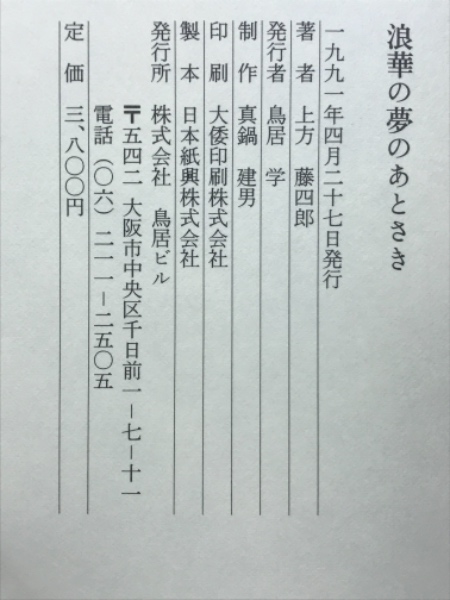 浪華の夢のあとさき
一九九一年四月二十七日発行
著者 上方 藤四郎
発行者 鳥居 学
制作 真鍋 建男
印刷 大倭印刷株式会社
製本 日本紙興株式会社
発行所 株式会社 鳥居ビル
〒五四二 大阪市中央区千日前一−七−十一
電話(〇六)二一一−二五〇五
定価 三、八〇〇円